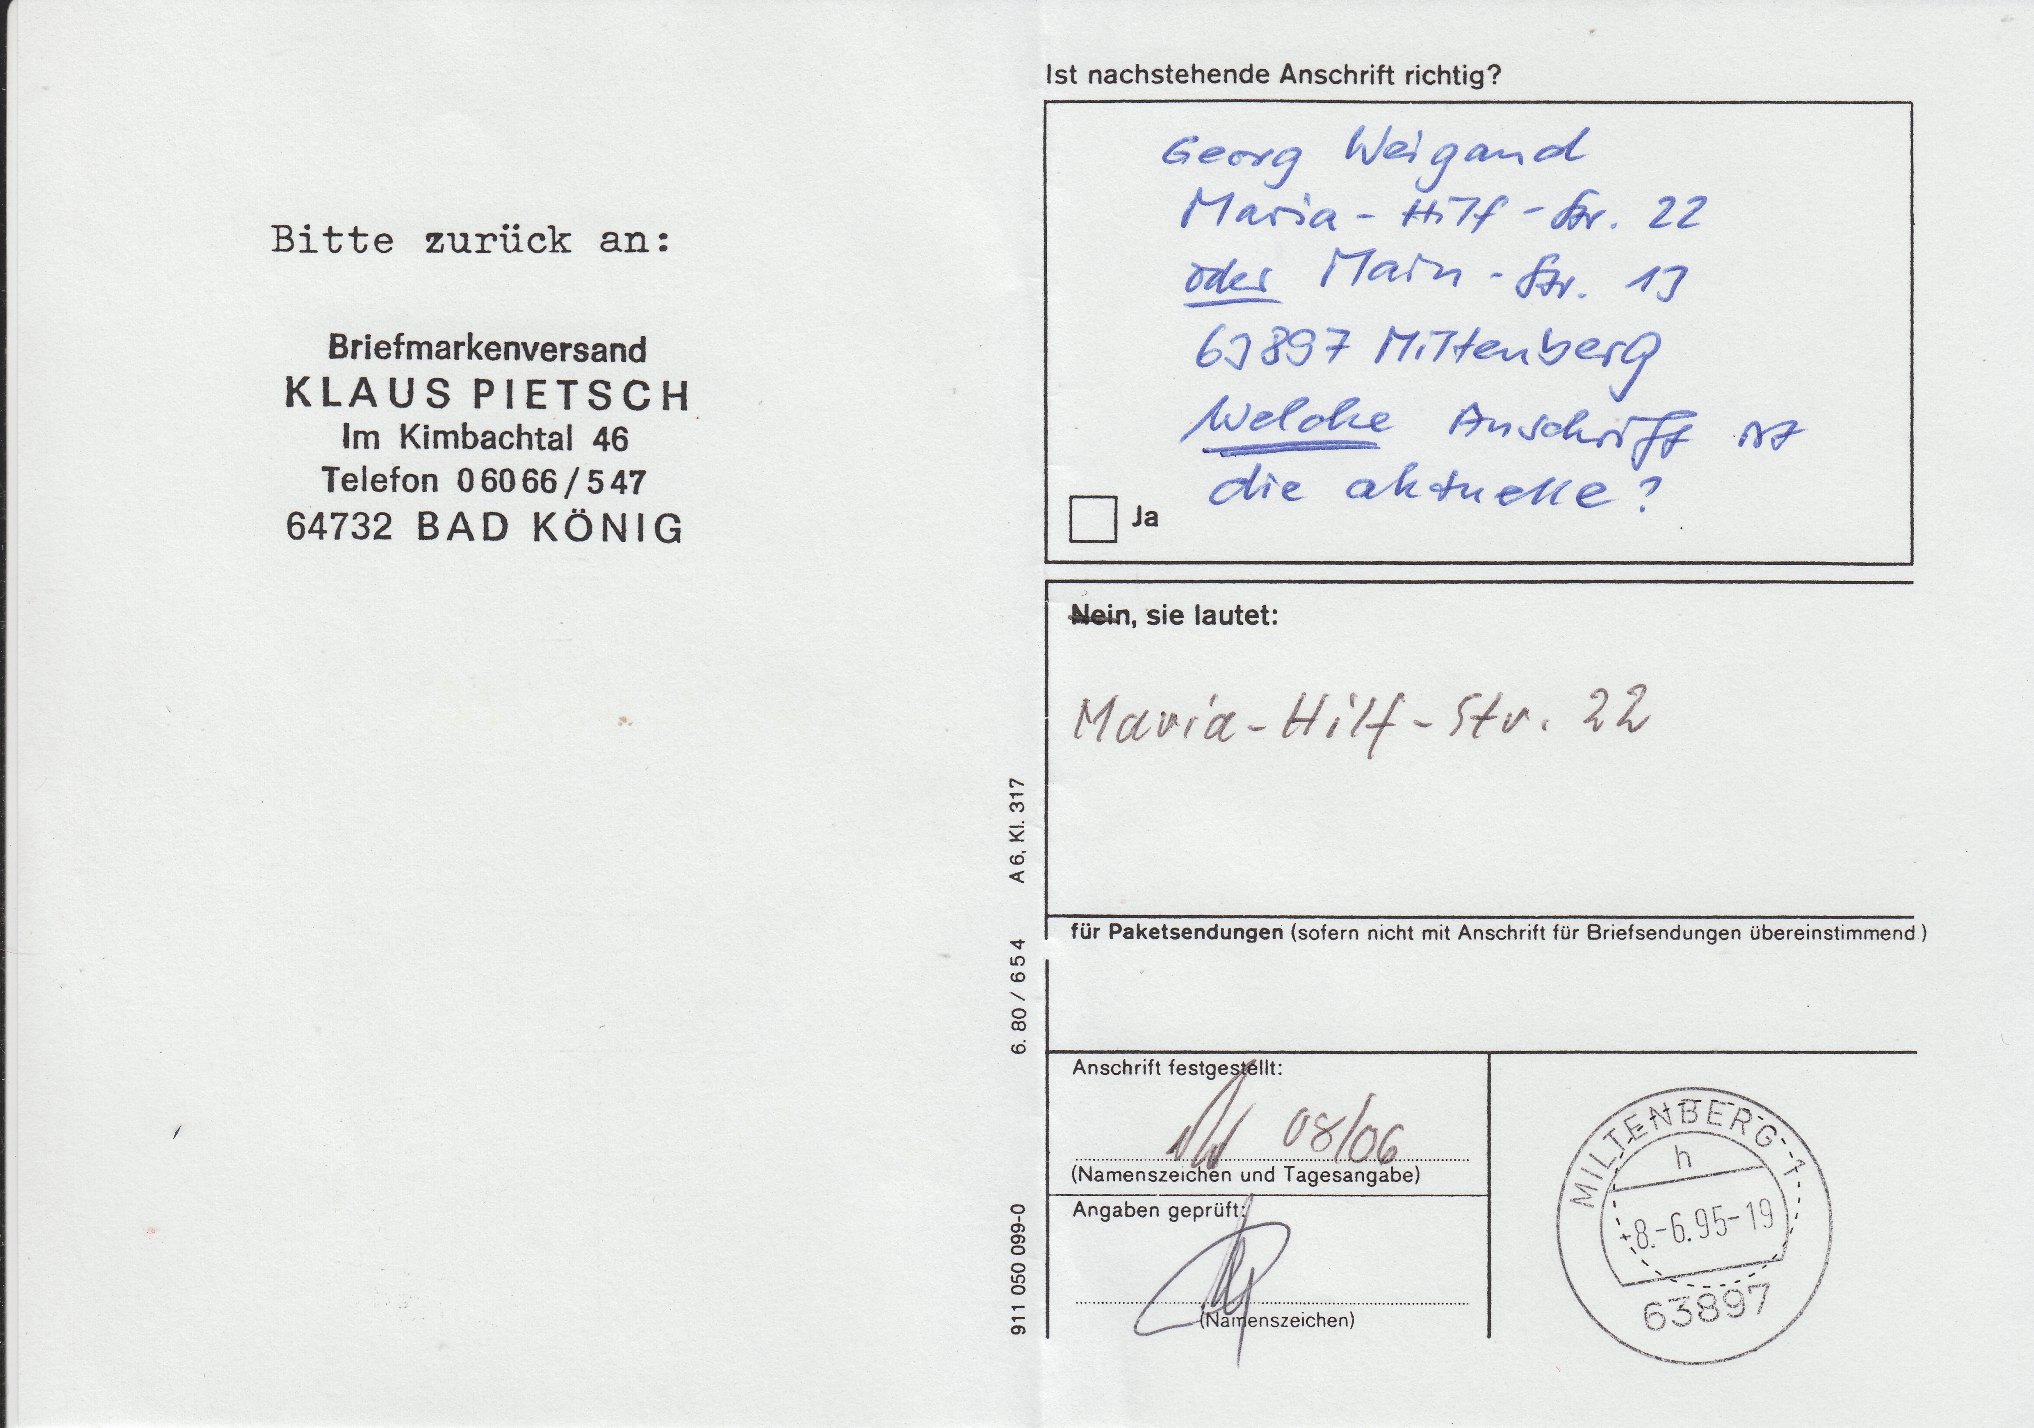 Bitte zurück an:
Briefmarkenversand
KLAUS PIETSCH
Im Kimbachtal 46
Telefon 06066/547
64732 BAD KÖNIG
Ist nachstehende Anschrift richtig?
Georg Weigand
Maria-Hilf-Str. 22
oder Main-Str. 19
63897 Miltenberg
Welche Anschrift ist
die aktuelle?
Ja
Nein, sie lautet:
Maria-Hilf-Str. 22
für Paketsendungen (sofern nicht mit Anschrift für Briefsendungen übereinstimmend)
Anschrift festgestellt:
08/06
(Namenszeichen und Tagesangabe)
Angaben geprüft:
(Namenszeichen)
MILTENBERG 1
h
-8.-6.95-19
63897
911 050 099-0 6. 80 / 654 A 6, Kl. 317